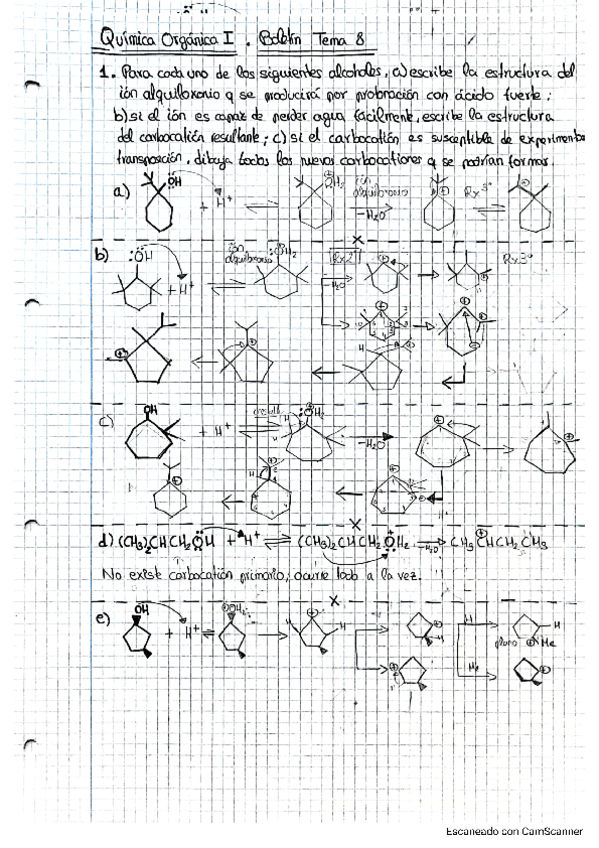 Química Orgánica I . Boletín Tema 8
1. Para cada uno de los siguientes alcoholes, a) escribe la estructura del
ión alquiloxonio q se producirá por protonación con ácido fuerte;
b) si el ión es capaz de perder agua fácilmente, escribe la estructura
del carbocatión resultante; c) si el carbocatión es susceptible de experimentar
transposición, dibuja todos los nuevos carbocationes q se podrían formar.
a) OH + H⁺ OH₂ ión alquiloxonio -H₂O Rx 3º
b) :ÖH + H⁺ ión alquiloxonio :OH₂ Rx 2º -H₂O Rx 3º
H
c) OH + H⁺ H :OH₂ -H₂O
H
d) (CH₃)₂CHCH₂ÖH + H⁺ (CH₃)₂CHCH₂ÖH₂ -H₂O CH₃CHCH₂CH₃
No existe carbocatión primario, ocurre todo a la vez.
e) OH + H⁺ OH₂ H H H H
plano Me
H₂
Escaneado con CamScanner